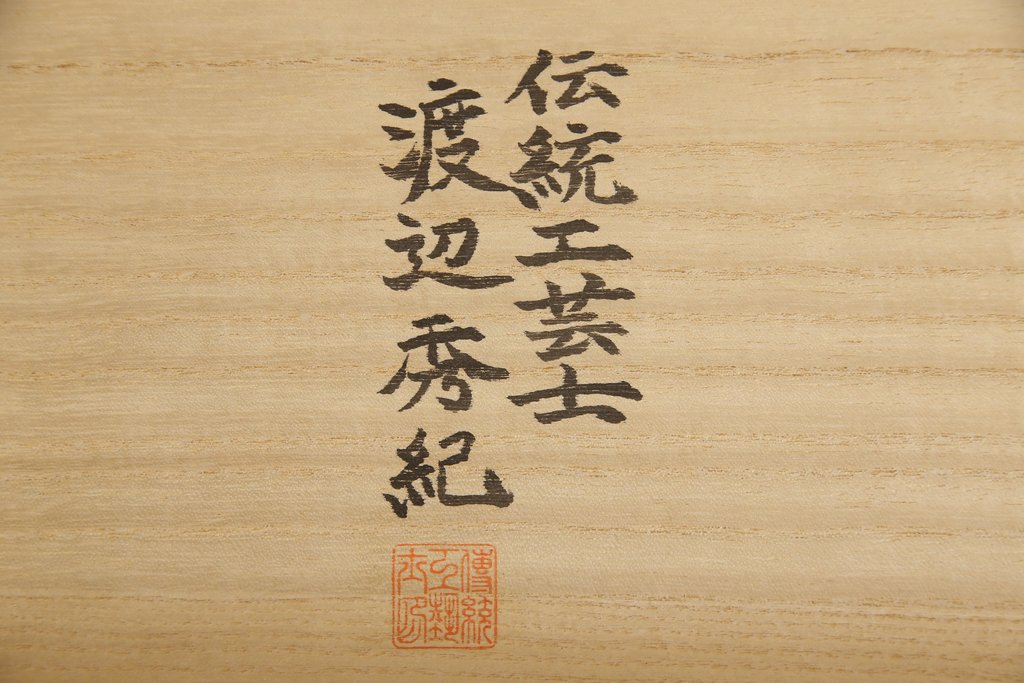 伝統工芸士
渡辺秀紀
傳統
工藝
士印